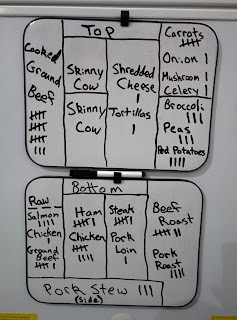 Top
Cooked
Ground
Beef
Skinny
Cow
Skinny
Cow
Shredded
Cheese
Tortillas
Carrots
Onion
Mushroom
Celery
Broccoli
Peas
Red Potatoes
Bottom
Raw
Salmon
Chicken
Ground
Beef
Ham
Chicken
Steak
Pork
Loin
Beef
Roast
Pork
Roast
Pork Stew
(side)